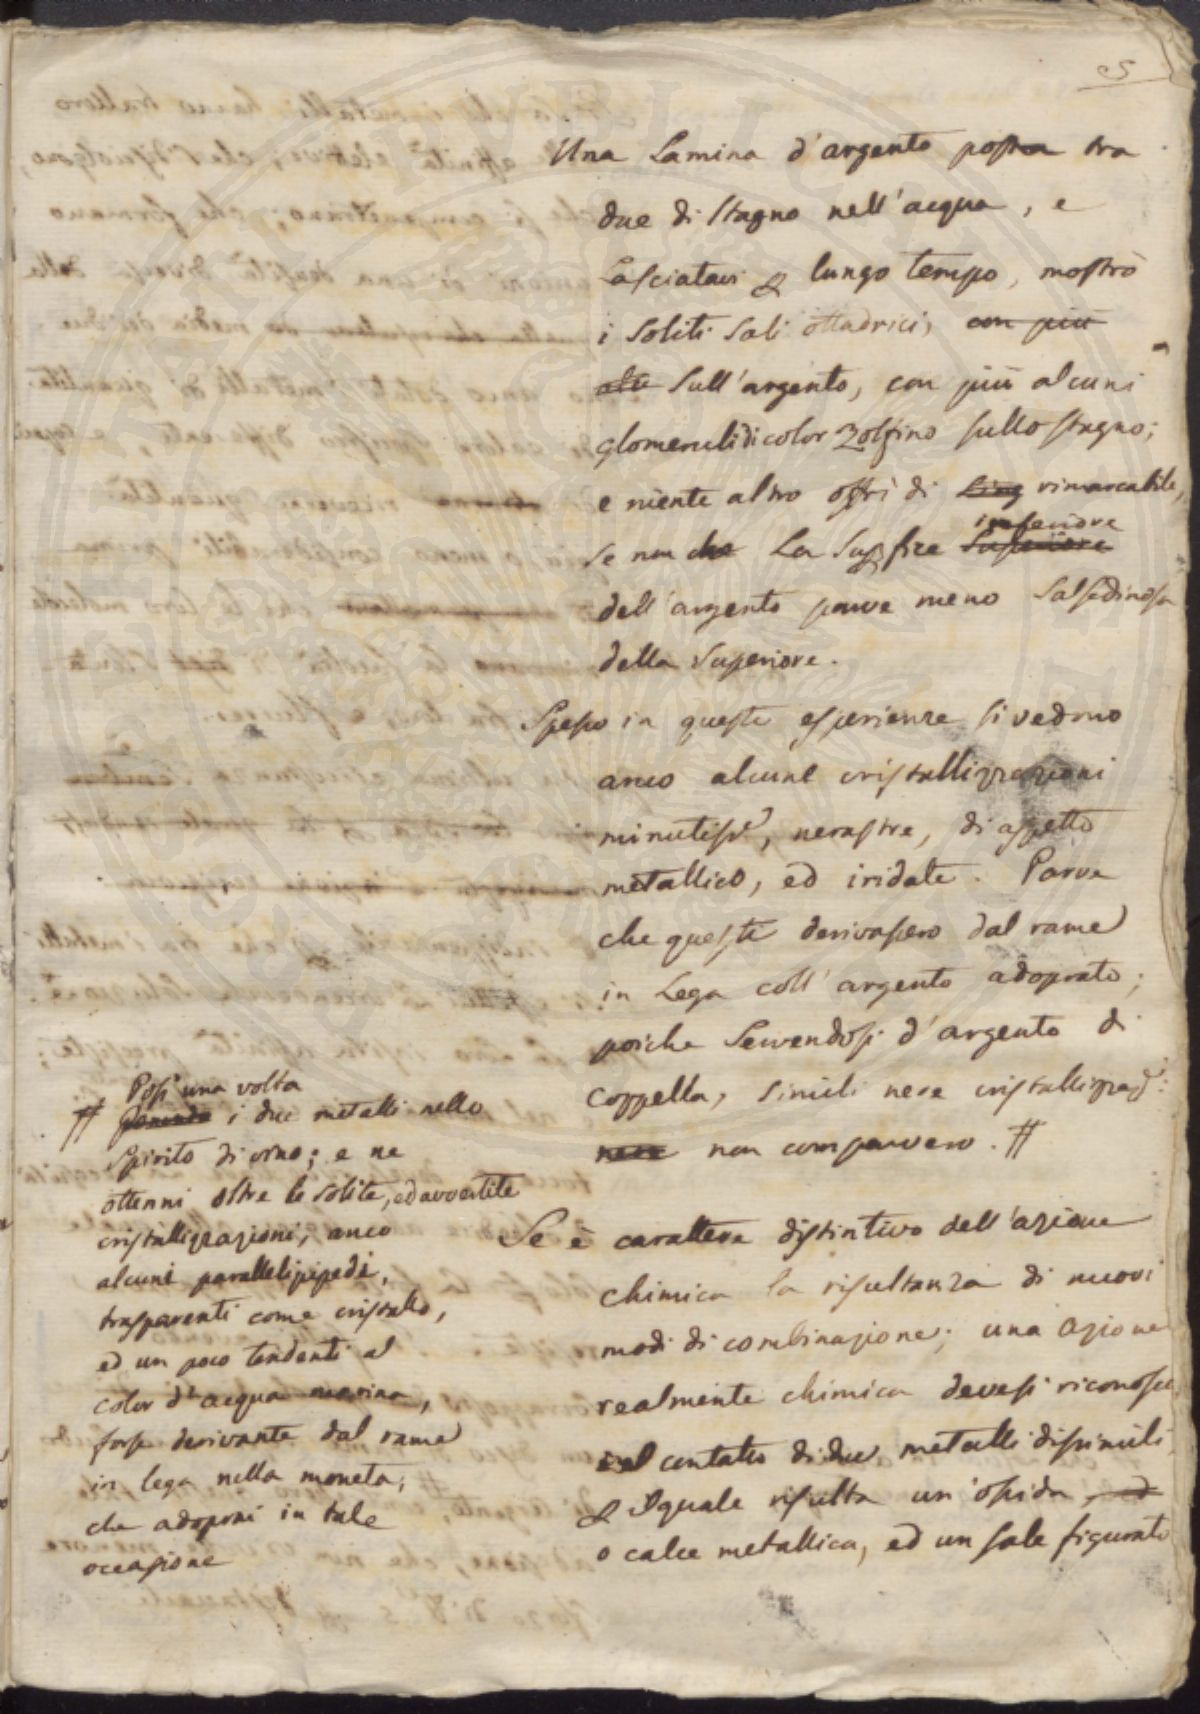 5
Una Lamina d'argento posta tra
due di stagno nell'acqua, e
Lasciatavi per lungo tempo, mostrò
i soliti sali ottadrici, con più
alte sull'argento, con più alcuni
glomeruli di color zolfino sullo stagno;
e niente altro offrì di rimarcabile,
inferiore
se non che La Superfize Superiore
dell'argento parve meno salsedinosa
della superiore.
Spesso in queste esperienze si vedono
anco alcune cristallizzazioni
minutisse, nerastre, di aspetto
metallico, ed iridate. Parve
che queste derivassero dal rame
in Lega coll'argento adoprato;
poiche servendosi d'argento di
Coppella, simili nere cristallizzaz:
nere non comparvero. #
Posi una volta
# ponendo i due metalli nello
spirito di vino; e ne
ottenni oltre le solite, ed avvertite
cristallizzazioni, anco
alcuni parallelipipedi,
trasparenti come cristallo,
ed un poco tendenti al
color d'acqua marina,
forse derivante dal rame
in lega nella moneta,
che adoprai in tale
occasione
Se è carattere distintivo dell'azione
chimica la risultanza di nuovi
modi di combinazione; una azione
realmente chimica devesi riconosce
nel contatto di due metalli dissimili,
per il quale risulta un'ossido, ed
o calce metallica, ed un sale figurato